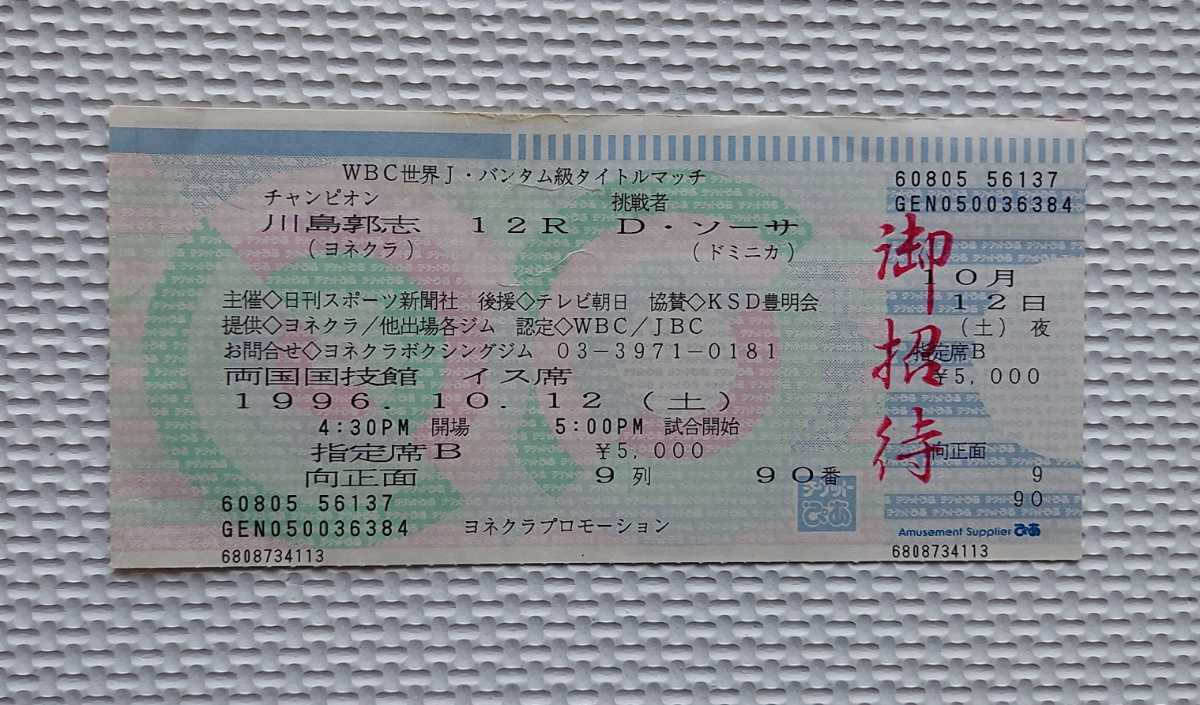 WBC世界J・バンタム級タイトルマッチ
チャンピオン 挑戦者
川島郭志 12R D・ソーサ
(ヨネクラ) (ドミニカ)
主催◇日刊スポーツ新聞社 後援◇テレビ朝日 協賛◇KSD豊明会
提供◇ヨネクラ/他出場各ジム 認定◇WBC/JBC
お問合せ◇ヨネクラボクシングジム 03-3971-0181
両国国技館 イス席
1996.10.12(土)
4:30PM 開場 5:00PM 試合開始
指定席B ¥5,000
向正面 9列 90番
60805 56137
GEN050036384 ヨネクラプロモーション
6808734113
チケットぴあ
60805 56137
GEN050036384
御招待
10月
12日
(土) 夜
指定席B
¥5,000
向正面
9
90
Amusement Supplier ぴあ
6808734113